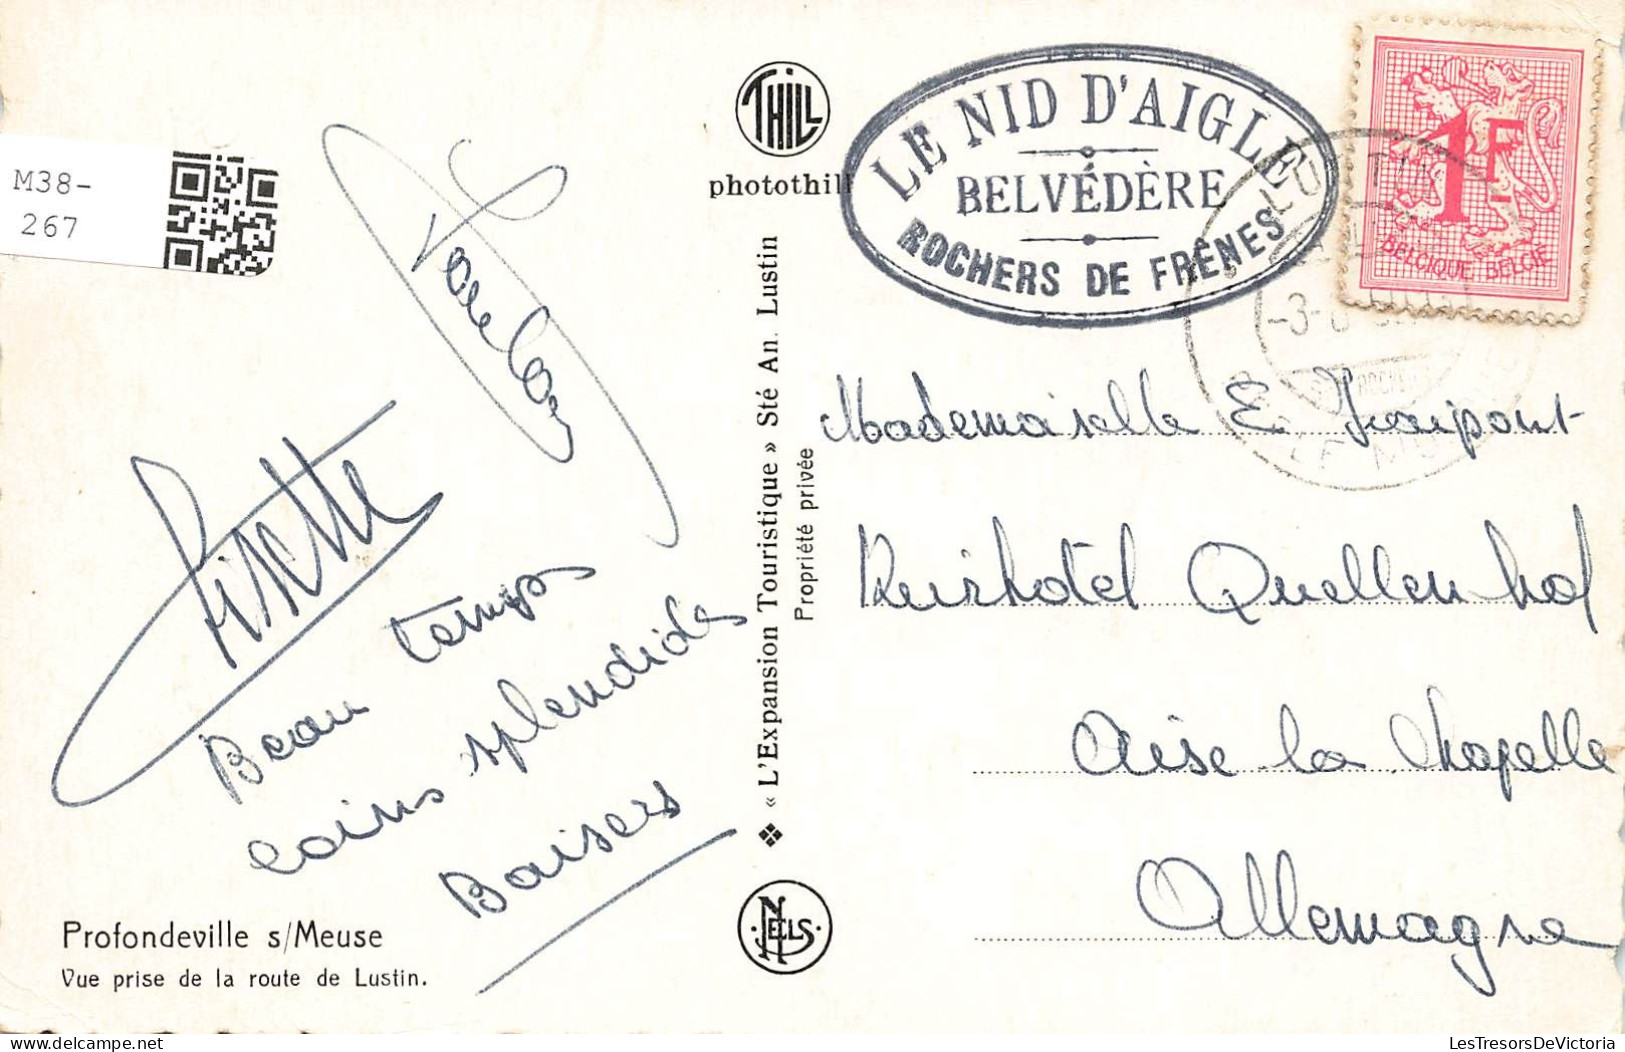 M38-
267
THILL
photothill
LE NID D'AIGLE
BELVÉDÈRE
ROCHERS DE FRÊNES
1F
BELGIQUE BELGIË
Lisette
Beau temps
coins splendides
Baisers
« L'Expansion Touristique » Sté An. Lustin
Propriété privée
Mademoiselle E. Fraipont
Kurhotel Quellenhof
Aise la Chapelle
Allemagne
Profondeville s/Meuse
Vue prise de la route de Lustin.
NELS
LesTresorsDeVictoria
delcampe.net